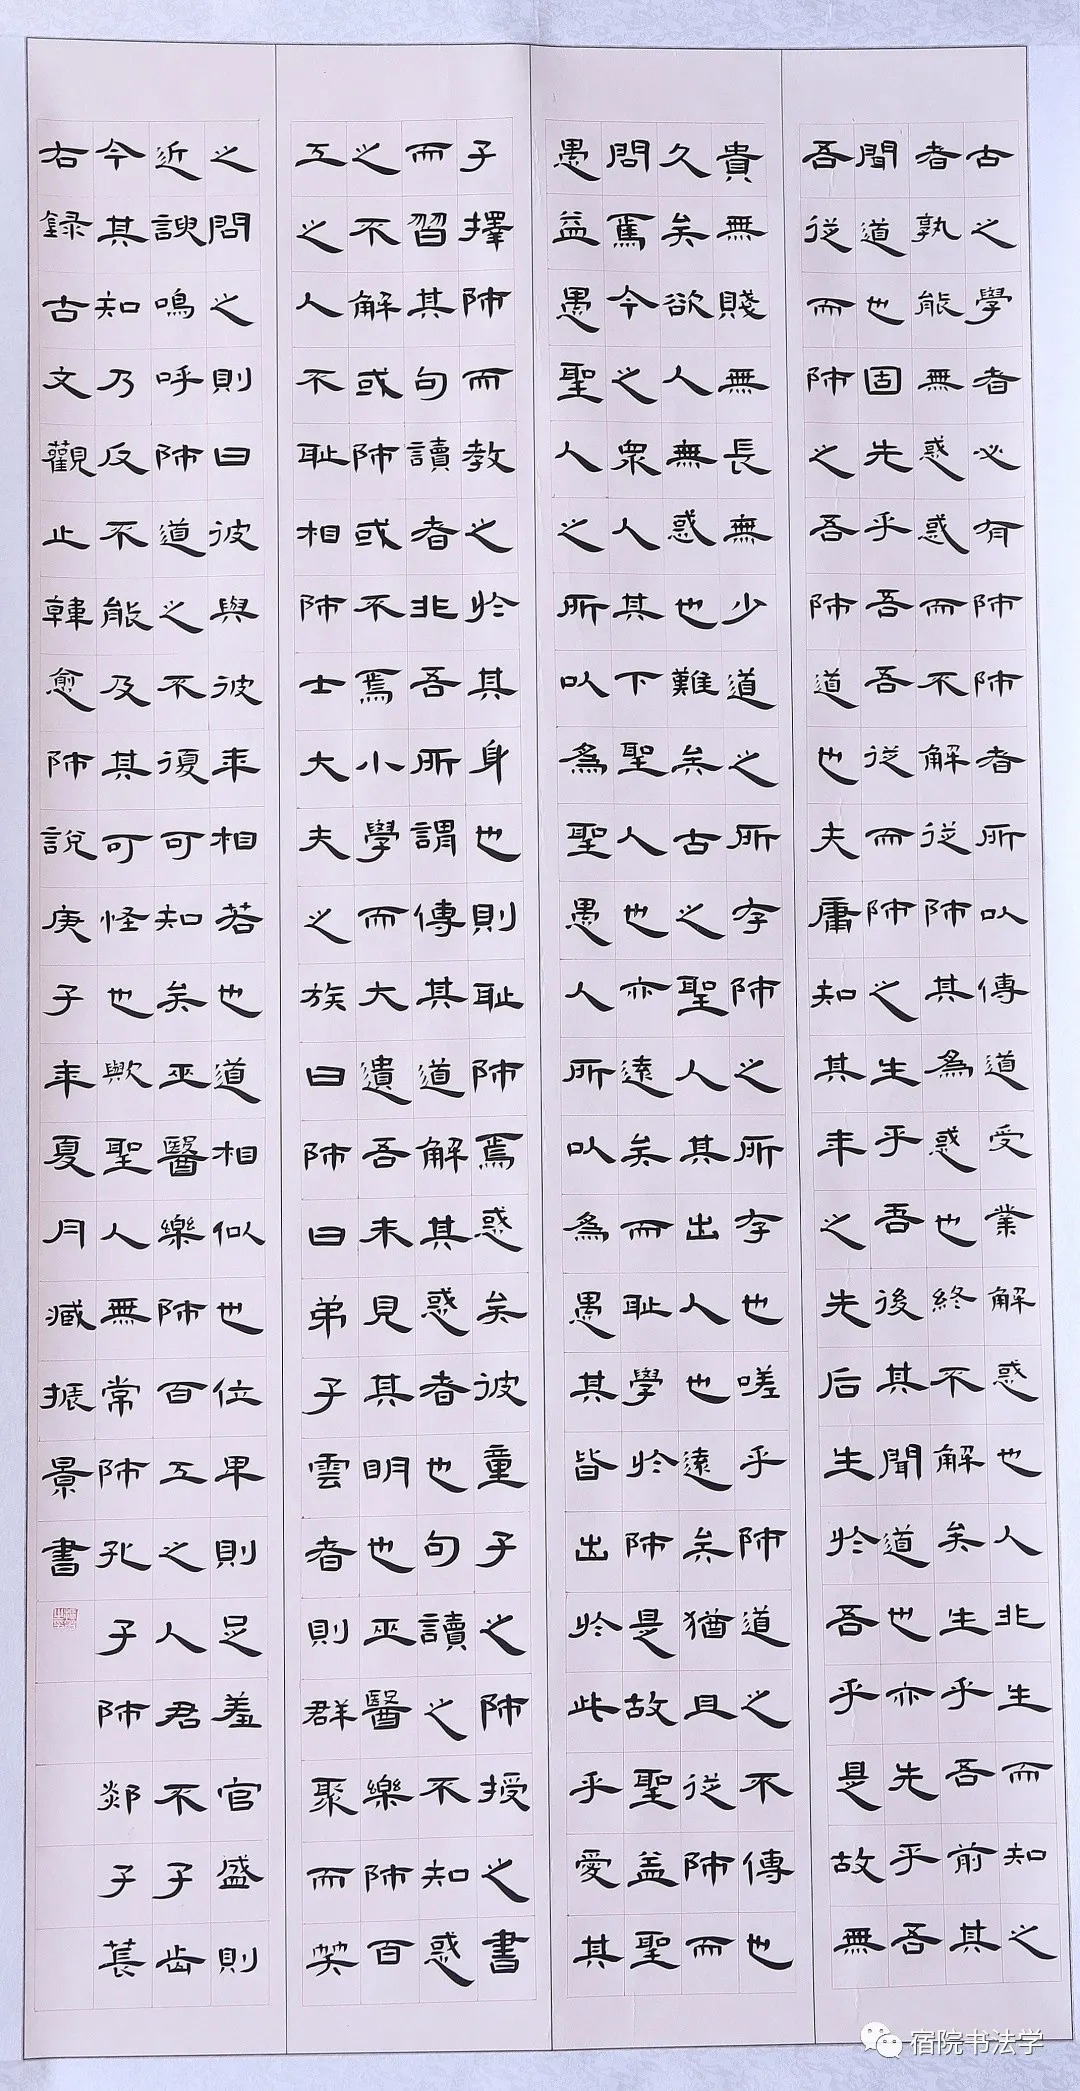 古之學者必有師師者所以傳道受業解惑也人非生而知之
者孰能無惑惑而不解從師其為惑也終不解矣生乎吾前其
聞道也固先乎吾吾從而師之生乎吾後其聞道也亦先乎吾
吾從而師之吾師道也夫庸知其年之先后生於吾乎是故無
貴無賤無長無少道之所存師之所存也嗟乎師道之不傳也
久矣欲人無惑也難矣古之聖人其出人也遠矣猶且從師而
問焉今之衆人其下聖人也亦遠矣而耻學於師是故聖益聖
愚益愚聖人之所以為聖愚人所以為愚其皆出於此乎愛其
子擇師而教之於其身也則耻師焉惑矣彼童子之師授之書
而習其句讀者非吾所謂傳其道解其惑者也句讀之不知惑
之不解或師或不焉小學而大遺吾未見其明也巫醫樂師百
工之人不耻相師士大夫之族曰師曰弟子雲者則群聚而笑
之問之則曰彼與彼年相若也道相似也位卑則足羞官盛則
近諛鳴呼師道之不復可知矣巫醫樂師百工之人君不子齒
今其知乃反不能及其可怪也歟聖人無常師孔子師郯子萇
右録古文觀止韓愈師說庚子年夏月臧振景書
宿院书法学